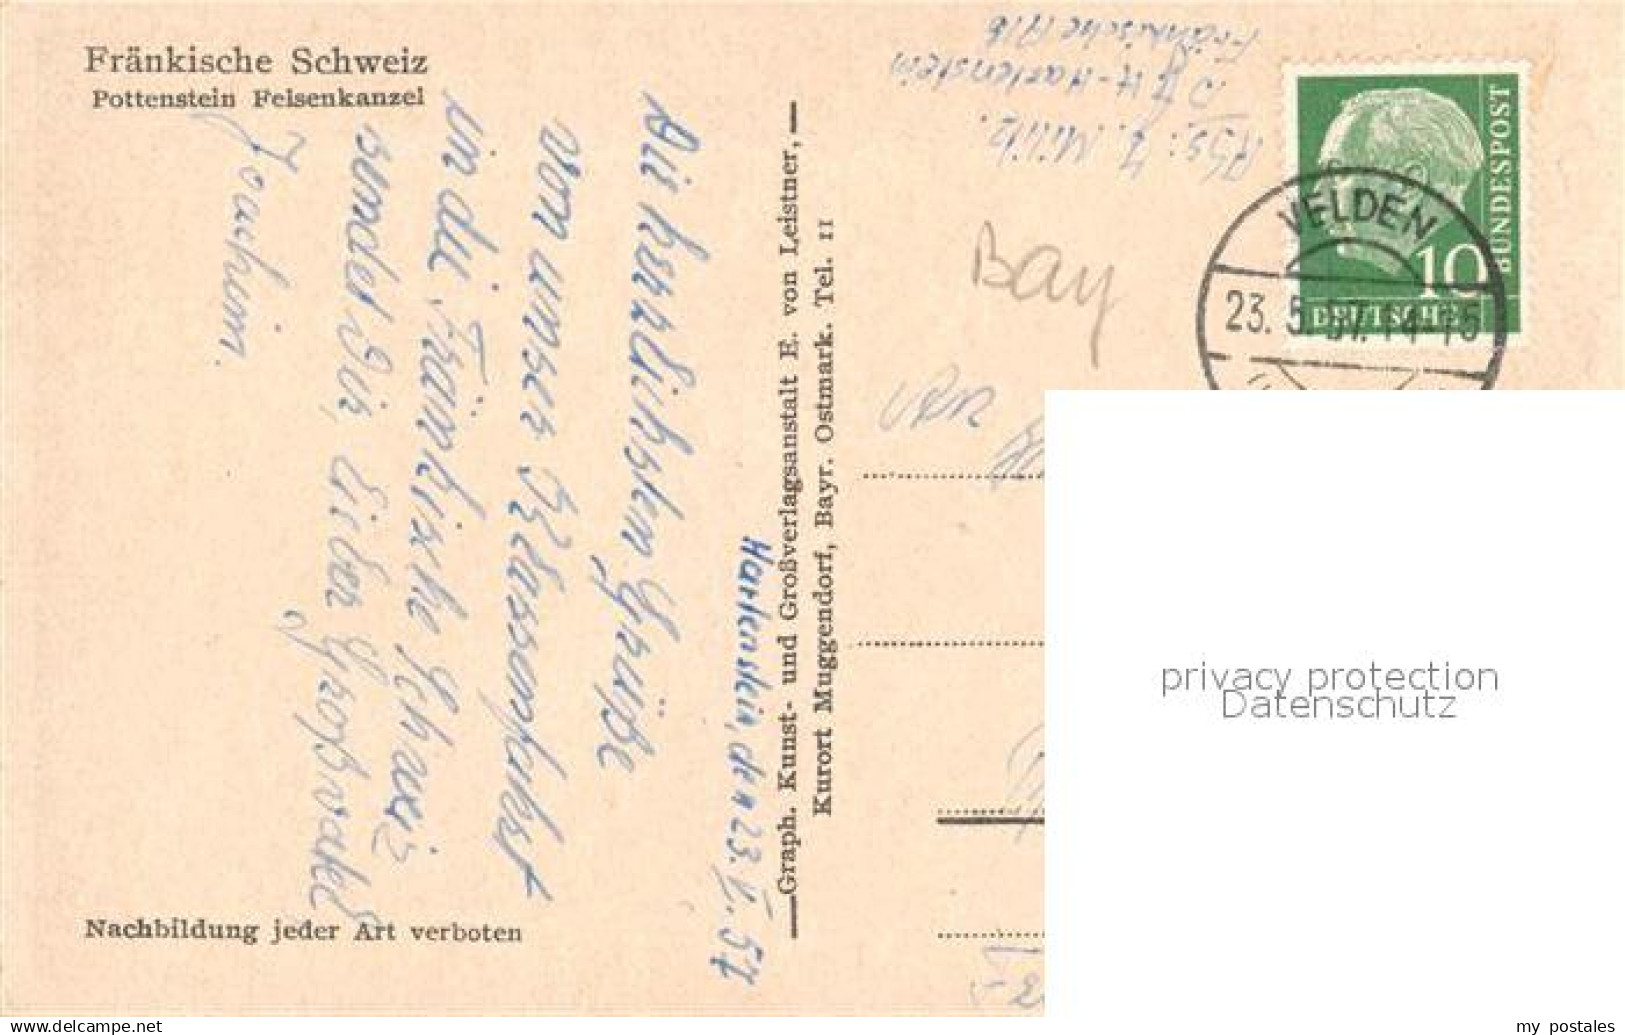 Fränkische Schweiz
Pottenstein Felsenkanzel
Hartenstein, den 23. V. 57
Die herzlichsten Grüße
von unser Klassenfahrt
in die Fränkische Schweiz
sendet Dir, lieber Großvater
Joachim.
Nachbildung jeder Art verboten
Graph. Kunst- und Großverlagsanstalt E. von Leistner,
Kurort Muggendorf, Bayr. Ostmark. Tel. 11
Abs: J.
Hartenstein
Fränkische Alb
Bay
DEUTSCHE
BUNDESPOST
10
VELDEN
23. 5. 57. 14-15
privacy protection
Datenschutz
Www.Delcampe.net
my_postales